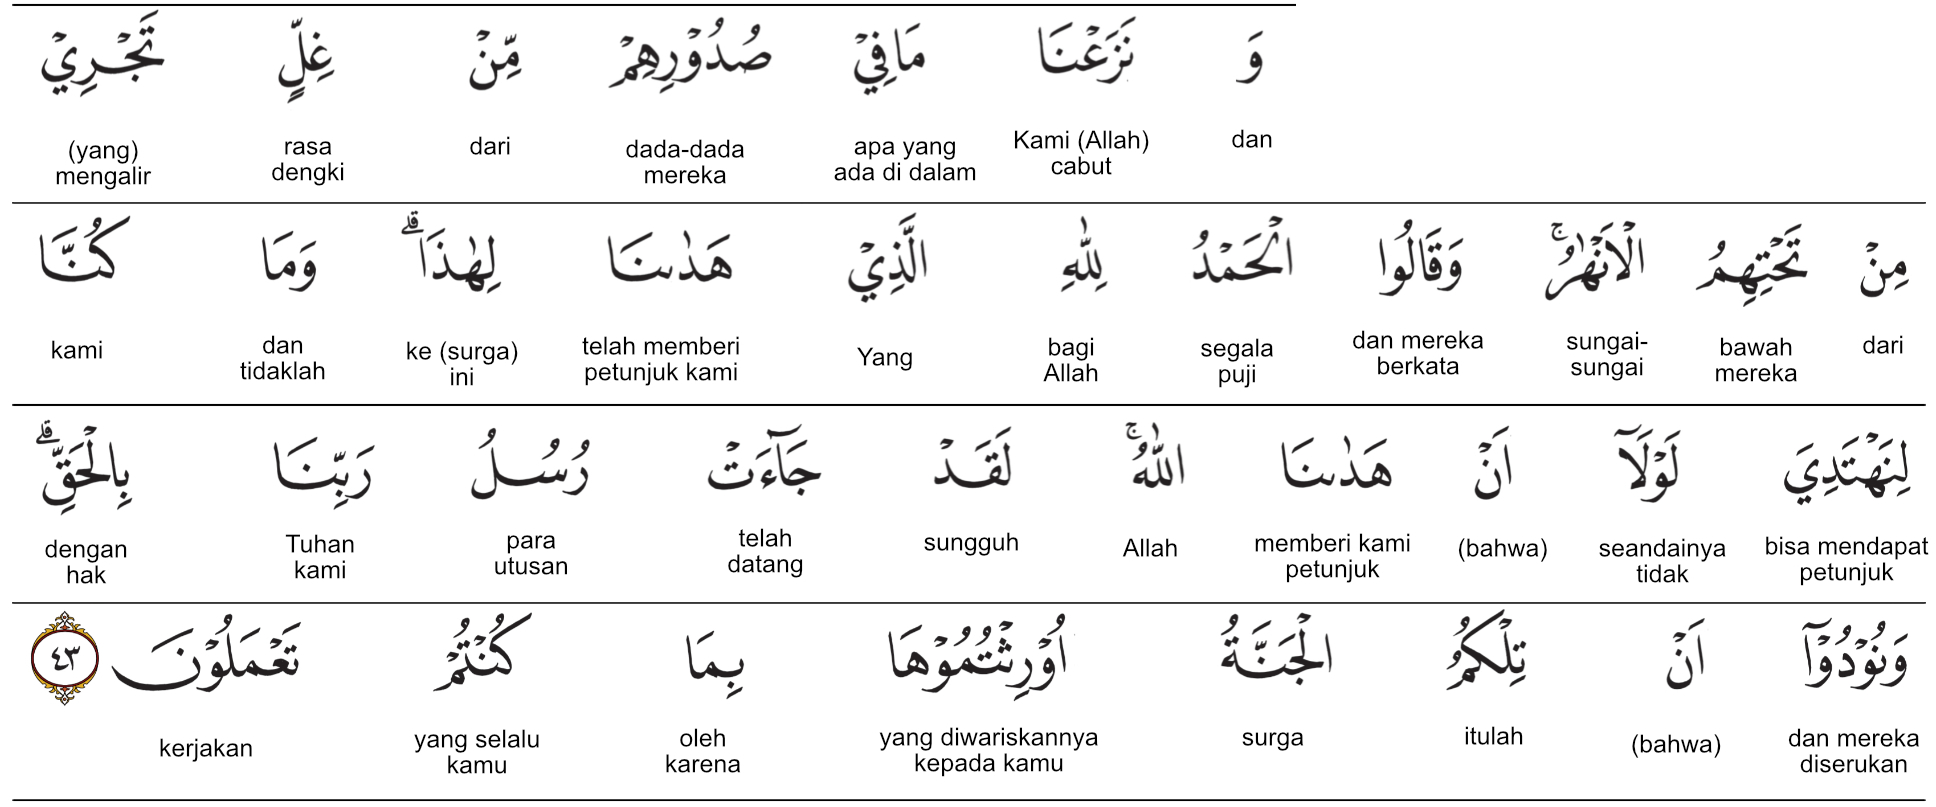 وَ نَزَعْنَا مَا فِيْ صُدُوْرِهِمْ مِّنْ غِلٍّ تَجْرِيْ
dan Kami (Allah) cabut apa yang ada di dalam dada-dada mereka dari rasa dengki (yang) mengalir
مِنْ تَحْتِهِمُ الْاَنْهٰرُۚ وَقَالُوا الْحَمْدُ لِلّٰهِ الَّذِيْ هَدٰىنَا لِهٰذَاۗ وَمَا كُنَّا
dari bawah mereka sungai-sungai dan mereka berkata segala puji bagi Allah Yang telah memberi petunjuk kami ke (surga) ini dan tidaklah kami
لِنَهْتَدِيَ لَوْلَآ اَنْ هَدٰىنَا اللّٰهُۚ لَقَدْ جَاۤءَتْ رُسُلُ رَبِّنَا بِالْحَقِّۗ
bisa mendapat petunjuk seandainya tidak (bahwa) memberi kami petunjuk Allah sungguh telah datang para utusan Tuhan kami dengan hak
وَنُوْدُوْٓا اَنْ تِلْكُمُ الْجَنَّةُ اُوْرِثْتُمُوْهَا بِمَا كُنْتُمْ تَعْمَلُوْنَ ٤٣
dan mereka diserukan (bahwa) itulah surga yang diwariskannya kepada kamu oleh karena yang selalu kamu kerjakan